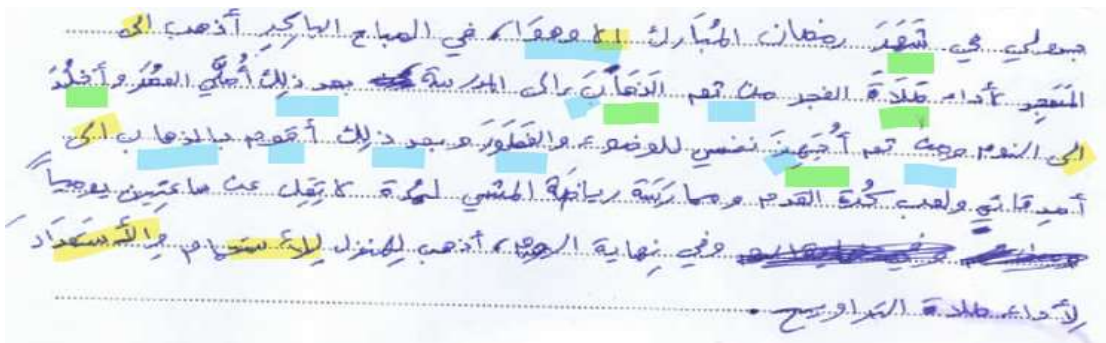 جدولي في شَهَرَ رمضان المُبَارك هوَ، في الصباح الباكِر أذهب الى
المَسَجِد لأداء صَلَاةَ الفجر من ثم الَذهَابَ الى المدرسة بعد ذلِكَ أُصلَّي العصُرَ وأخلُدَ
الى النوم ومِن ثم أُجَهِزَ نفسي للوضوء والفَطَورَ وبعد ذلك أقوم بالذهاب الى
أصدقائي ولعب كُرة القدم وممارَسَة رياضَة المشي لمُدة لا تقِل عن ساعتين يومياً
وفي نِهاية اليوم، أذهب للمنزل لِلأستحمام والأستعدَاد
لِأداء صلاة التراويح.